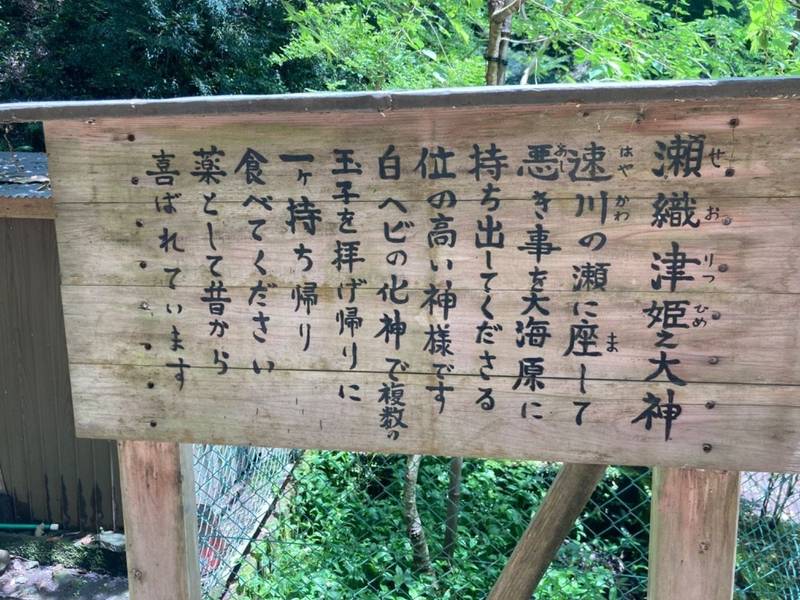 瀬織津姫之大神
せおりつひめ
速川の瀬に座して
はやかわ ま
悪き事を大海原に
あ
持ち出してくださる
位の高い神様です
白ヘビの化神で複数の
玉子を拝げ帰りに
一ヶ持ち帰り
食べてください
薬として昔から
喜ばれています